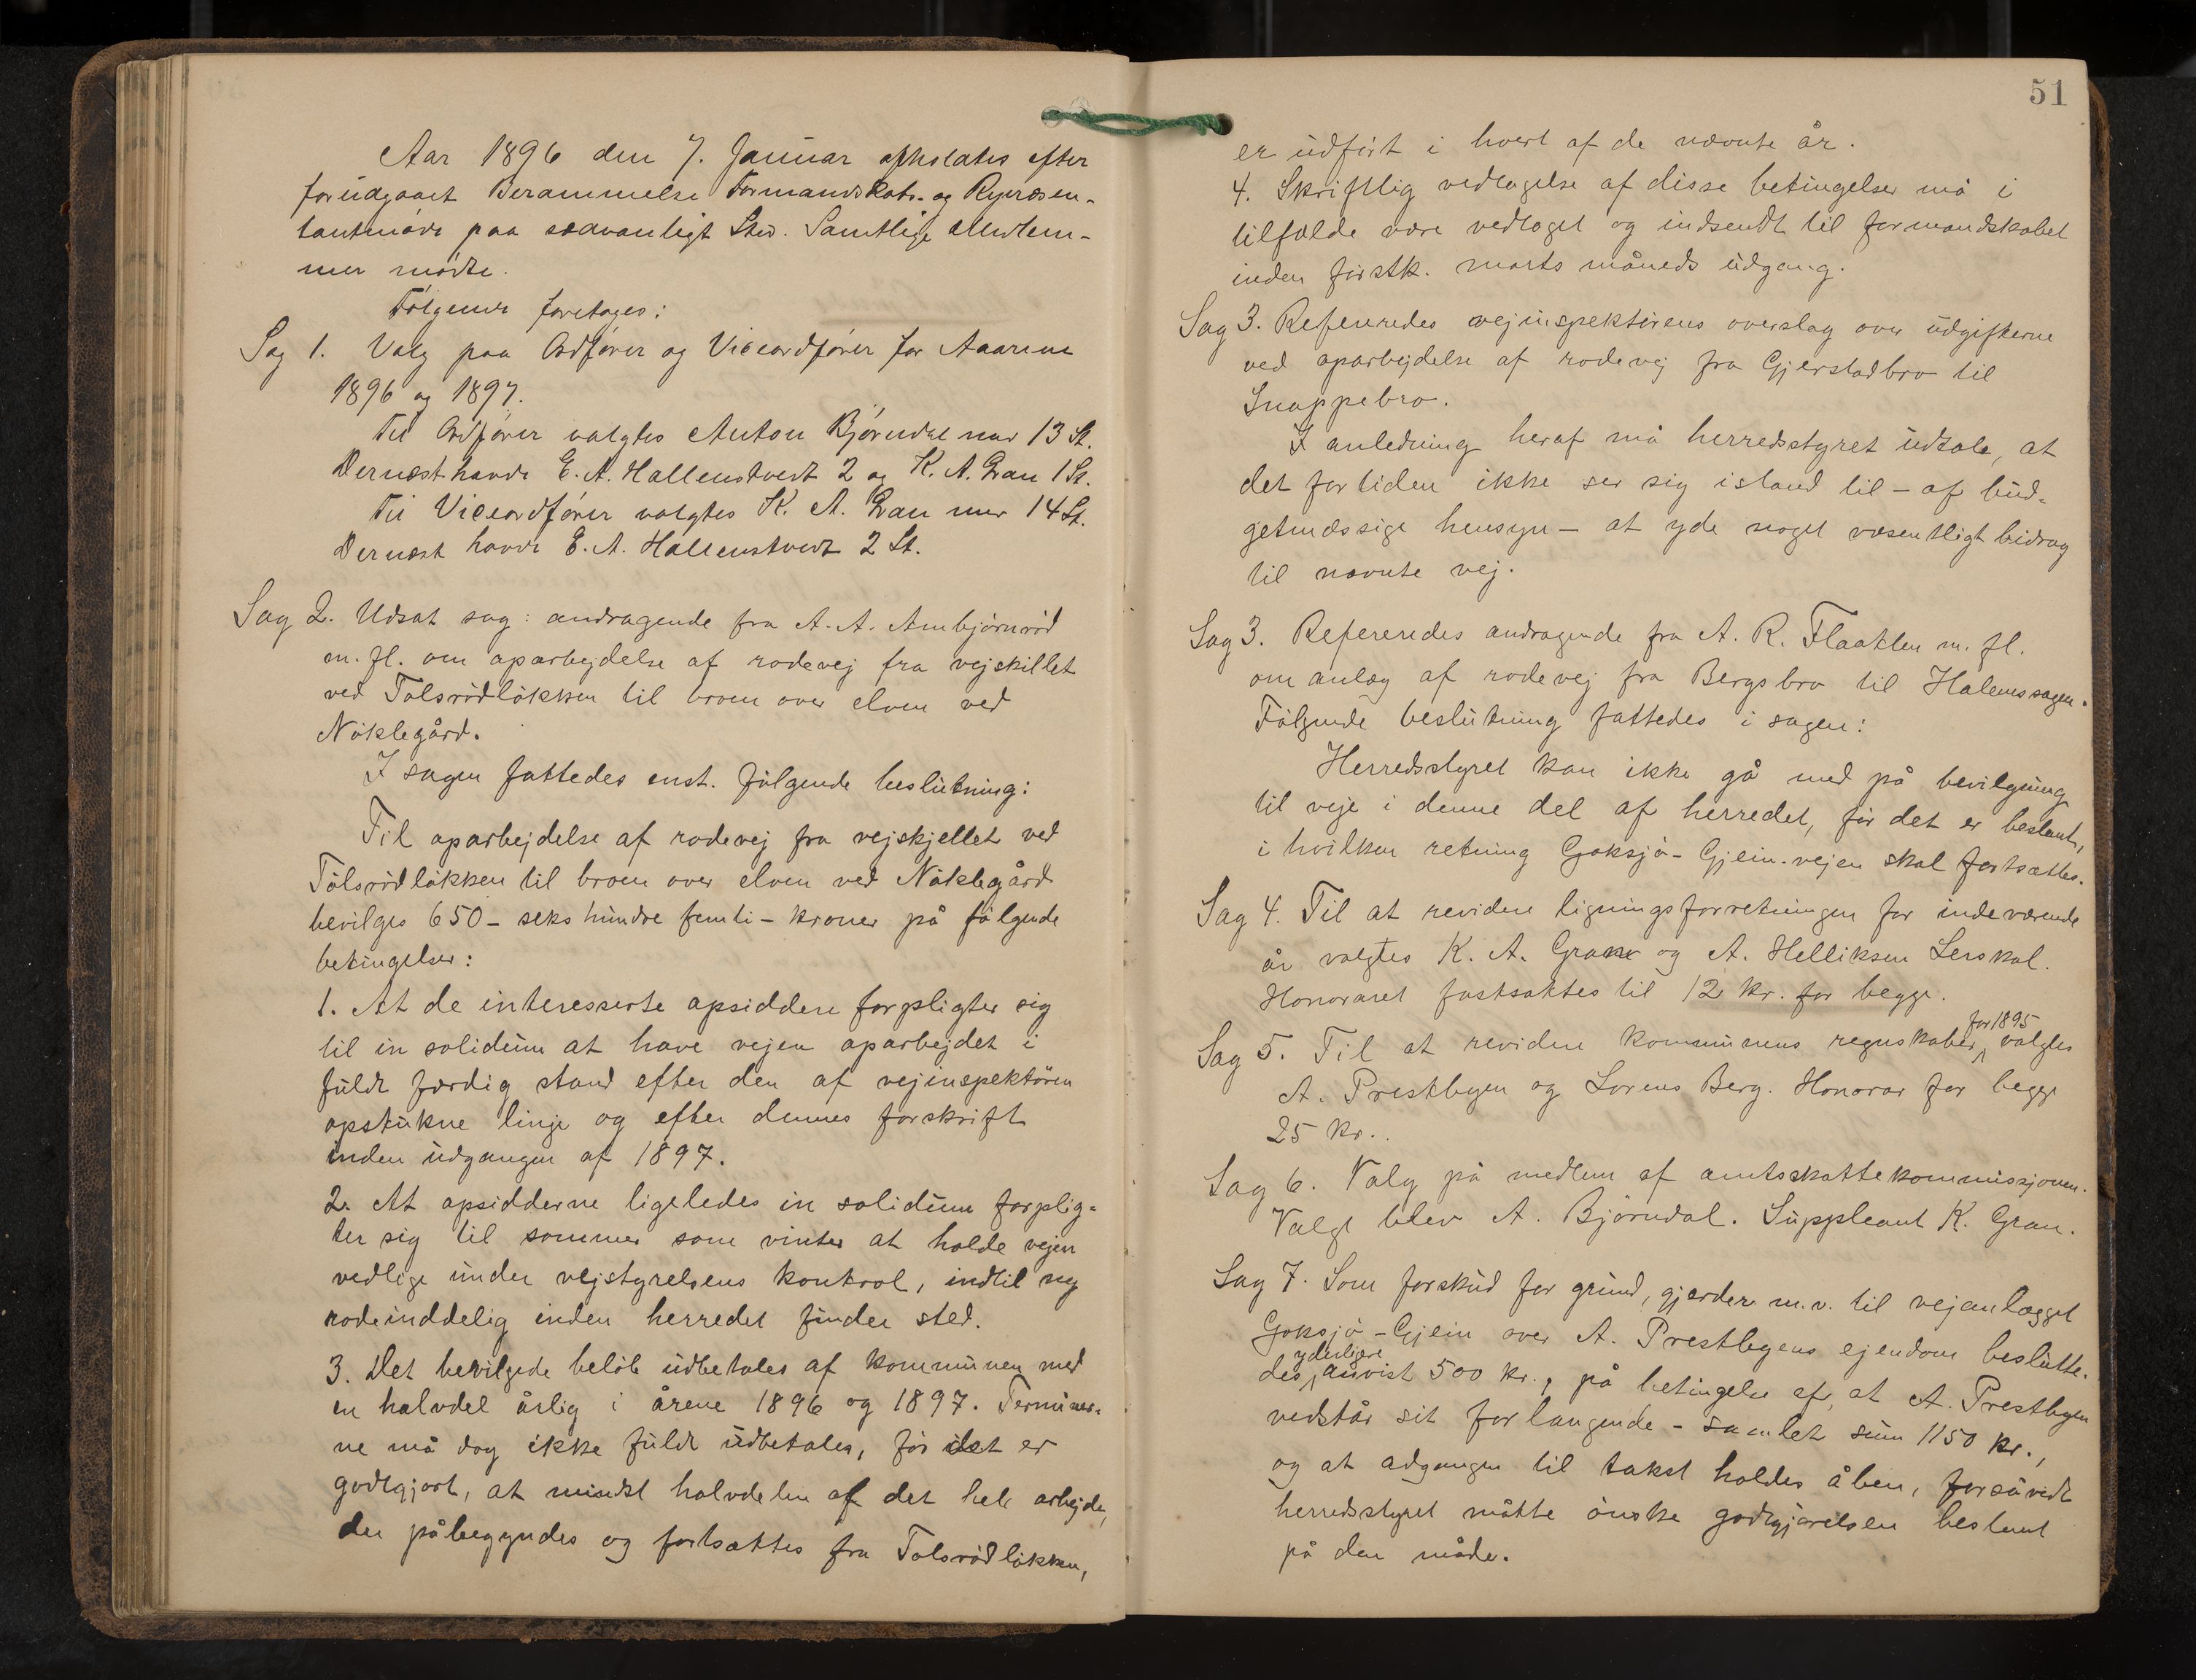 Aar 1896 den 7. Januar afholdtes efter
forudgaaet Berammelse Formandskabs- og Repræsen-
tantmøde paa sædvanligt Sted. Samtlige Medlem-
mer mødte.
Følgende foretages:
Sag 1. Valg paa Ordfører og Viceordfører for Aarene
1896 og 1897.
Til Ordfører valgtes Anton Bjørndal med 13 St.
Dernæst havde E. A. Hallenstvedt 2 og K. A. Gran 1 St.
Til Viceordfører valgtes K. A. Gran med 14 St.
Dernæst havde E. A. Hallenstvedt 2 St.
Sag 2. Udsat sag: andragende fra A. A. Ambjørnrød
m. fl. om oparbejdelse af rodevej fra vejskillet
ved Tolsrødløkken til broen over elven ved
Nøklegård.
I sagen fattedes enst. følgende beslutning:
Til oparbejdelse af rodevej fra vejskjellet ved
Tolsrødløkken til broen over elven ved Nøklegård
bevilges 650 - seks hundre femti - kroner på følgende
betingelser:
1. At de interesserte opsiddere forpligter sig
til in solidum at have vejen oparbejdet i
fuldt færdig stand efter den af vejinspektøren
opstukne linje og efter dennes forskrift
inden udgangen af 1897.
2. At opsidderne ligeledes in solidum forplig-
ter sig til sommer som vinter at holde vejen
vedlige under vejstyrelsens kontrol, indtil ny
rodeinddelig inden herredet finder sted.
3. Det bevilgede beløb udbetales af kommunen med
en halvdel årlig i årene 1896 og 1897. Terminer-
ne må dog ikke fuldt udbetales, før det er
godtgjort, at mindst halvdelen af det hele arbejde,
der påbegyndes og fortsættes fra Tolsrødløkken,
51
er udført i hvert af de nævnte år.
4. Skriftlig vedtagelse af disse betingelser må i
tilfælde være vedtaget og indsendt til formandskabet
inden førstk. marts måneds udgang.
Sag 3. Refereredes vejinspektørens overslag over udgifterne
ved oparbejdelse af rodevej fra Gjerstadbro til
Snappebro.
I anledning heraf må herredsstyret udtale, at
det for tiden ikke ser sig istand til - af bud-
getmæssige hensyn - at yde noget væsentligt bidrag
til nævnte vej.
Sag 3. Refereredes andragende fra A. R. Flaatten m. fl.
om anlæg af rodevej fra Bergsbro til Halenssagen.
Følgende beslutning fattedes i sagen:
Herredsstyret kan ikke gå med på bevilgning
til veje i denne del af herredet, før det er bestemt,
i hvilken retning Goksjø-Gjein-vejen skal fortsættes.
Sag 4. Til at revidere ligningsforretningen for indeværende
år valgtes K. A. Gran og A. Helliksen Lerskal.
Honoraret fastsattes til 12 kr. for begge.
Sag 5. Til at revidere kommunens regnskaber for 1895 valgtes
A. Prestbyen og Lorens Berg. Honorar for begge
25 kr.
Sag 6. Valg på medlem af amtsskattekommissjonen.
Valgt blev A. Bjørndal. Suppleant K. Gran.
Sag 7. Som forskud for grund, gjerder m.v. til vejanlægget
Goksjø-Gjein over A. Prestbyens ejendom beslutte-
des yderligere anvist 500 kr., på betingelse af, at A. Prestbyen
vedstår sit forlangende - samlet sum 1150 kr.,
og at adgangen til takst holdes åben, forsåvidt
herredsstyret måtte ønske godtgjørelsen bestemt
på den måde.